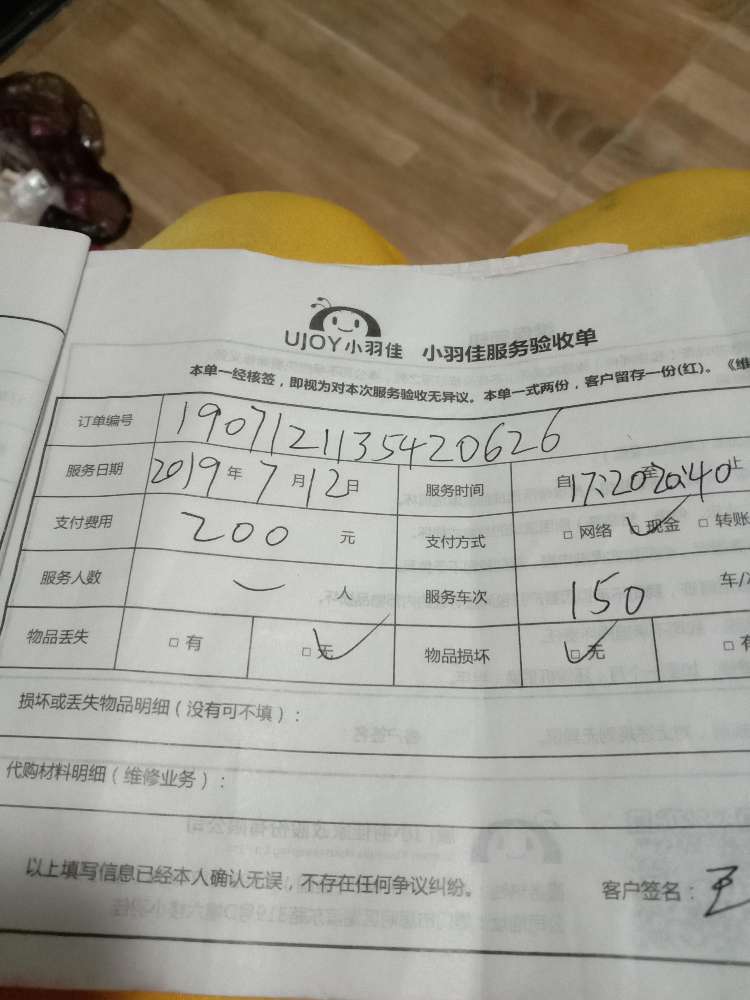 UJOY小羽佳 小羽佳服务验收单
本单一经核签，即视为对本次服务验收无异议。本单一式两份，客户留存一份(红)。《维
订单编号 190712113542062​6
服务日期 2019年7月12日 服务时间 自17:20至20:40止
支付费用 200元 支付方式 □网络 □现金 □转账
服务人数 一人 服务车次 150 车/
物品丢失 □有 □无 物品损坏 □无 □有
损坏或丢失物品明细（没有可不填）：
代购材料明细（维修业务）：
以上填写信息已经本人确认无误，不存在任何争议纠纷。 客户签名：